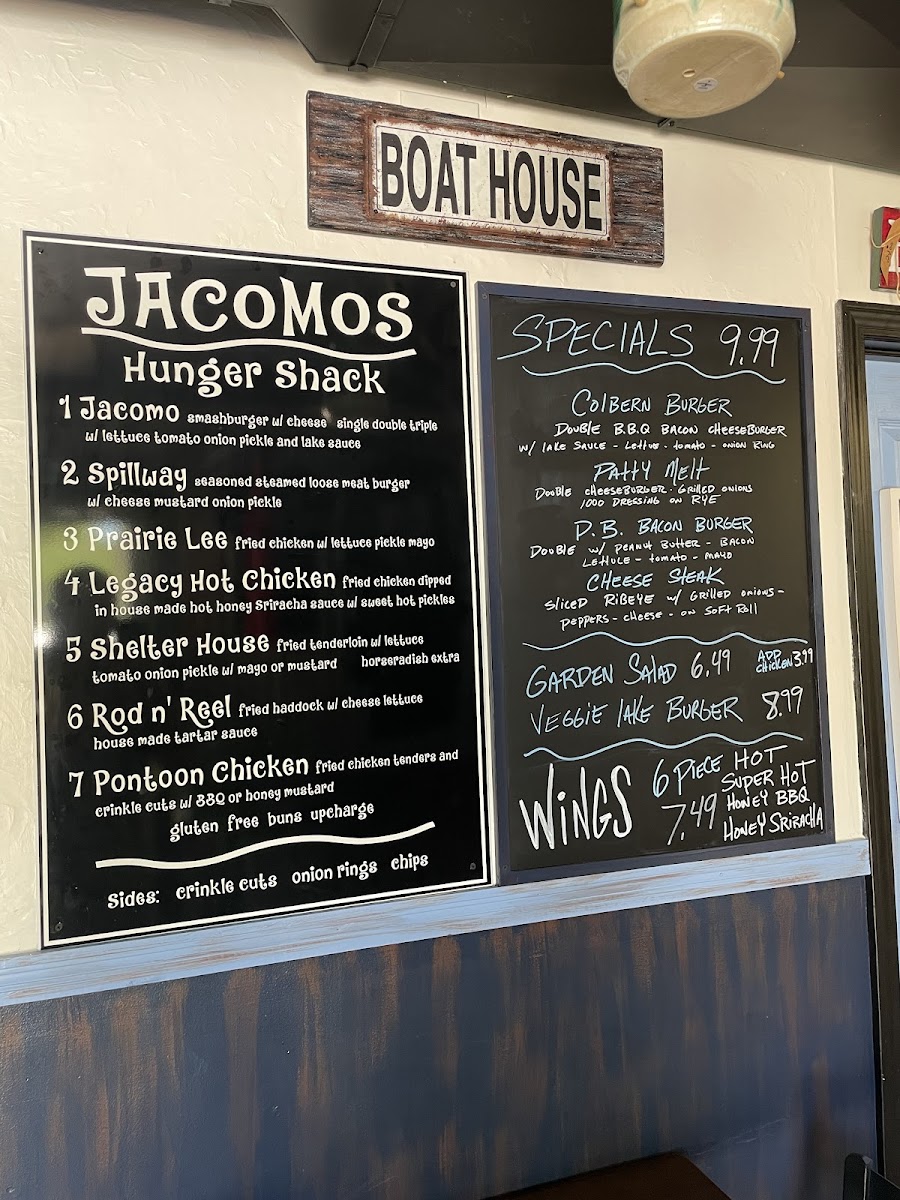 BOAT HOUSE
JACOMOS
Hunger Shack
1 Jacomo smashburger w/ cheese single double triple
w/ lettuce tomato onion pickle and lake sauce
2 Spillway seasoned steamed loose meat burger
w/ cheese mustard onion pickle
3 Prairie Lee fried chicken w/ lettuce pickle mayo
4 Legacy Hot Chicken fried chicken dipped
in house made hot honey Sriracha sauce w/ sweet hot pickles
5 Shelter House fried tenderloin w/ lettuce
tomato onion pickle w/ mayo or mustard horseradish extra
6 Rod n' Reel fried haddock w/ cheese lettuce
house made tartar sauce
7 Pontoon Chicken fried chicken tenders and
crinkle cuts w/ BBQ or honey mustard
gluten free buns upcharge
Sides: crinkle cuts onion rings chips
SPECIALS 9.99
COLBERN BURGER
DOUBLE B.B.Q BACON CHEESEBURGER
W/ LAKE SAUCE - LETTUCE - TOMATO - ONION RING
PATTY MELT
DOUBLE CHEESEBURGER - GRILLED ONIONS
1000 DRESSING ON RYE
P.B. BACON BURGER
DOUBLE W/ PEANUT BUTTER - BACON
LETTUCE - TOMATO - MAYO
CHEESE STEAK
SLICED RIBEYE W/ GRILLED ONIONS -
PEPPERS - CHEESE - ON SOFT ROLL
GARDEN SALAD 6.49 ADD CHICKEN 3.99
VEGGIE LAKE BURGER 8.99
WINGS 6 PIECE 7.49
HOT
SUPER HOT
HONEY BBQ
HONEY SRIRACHA